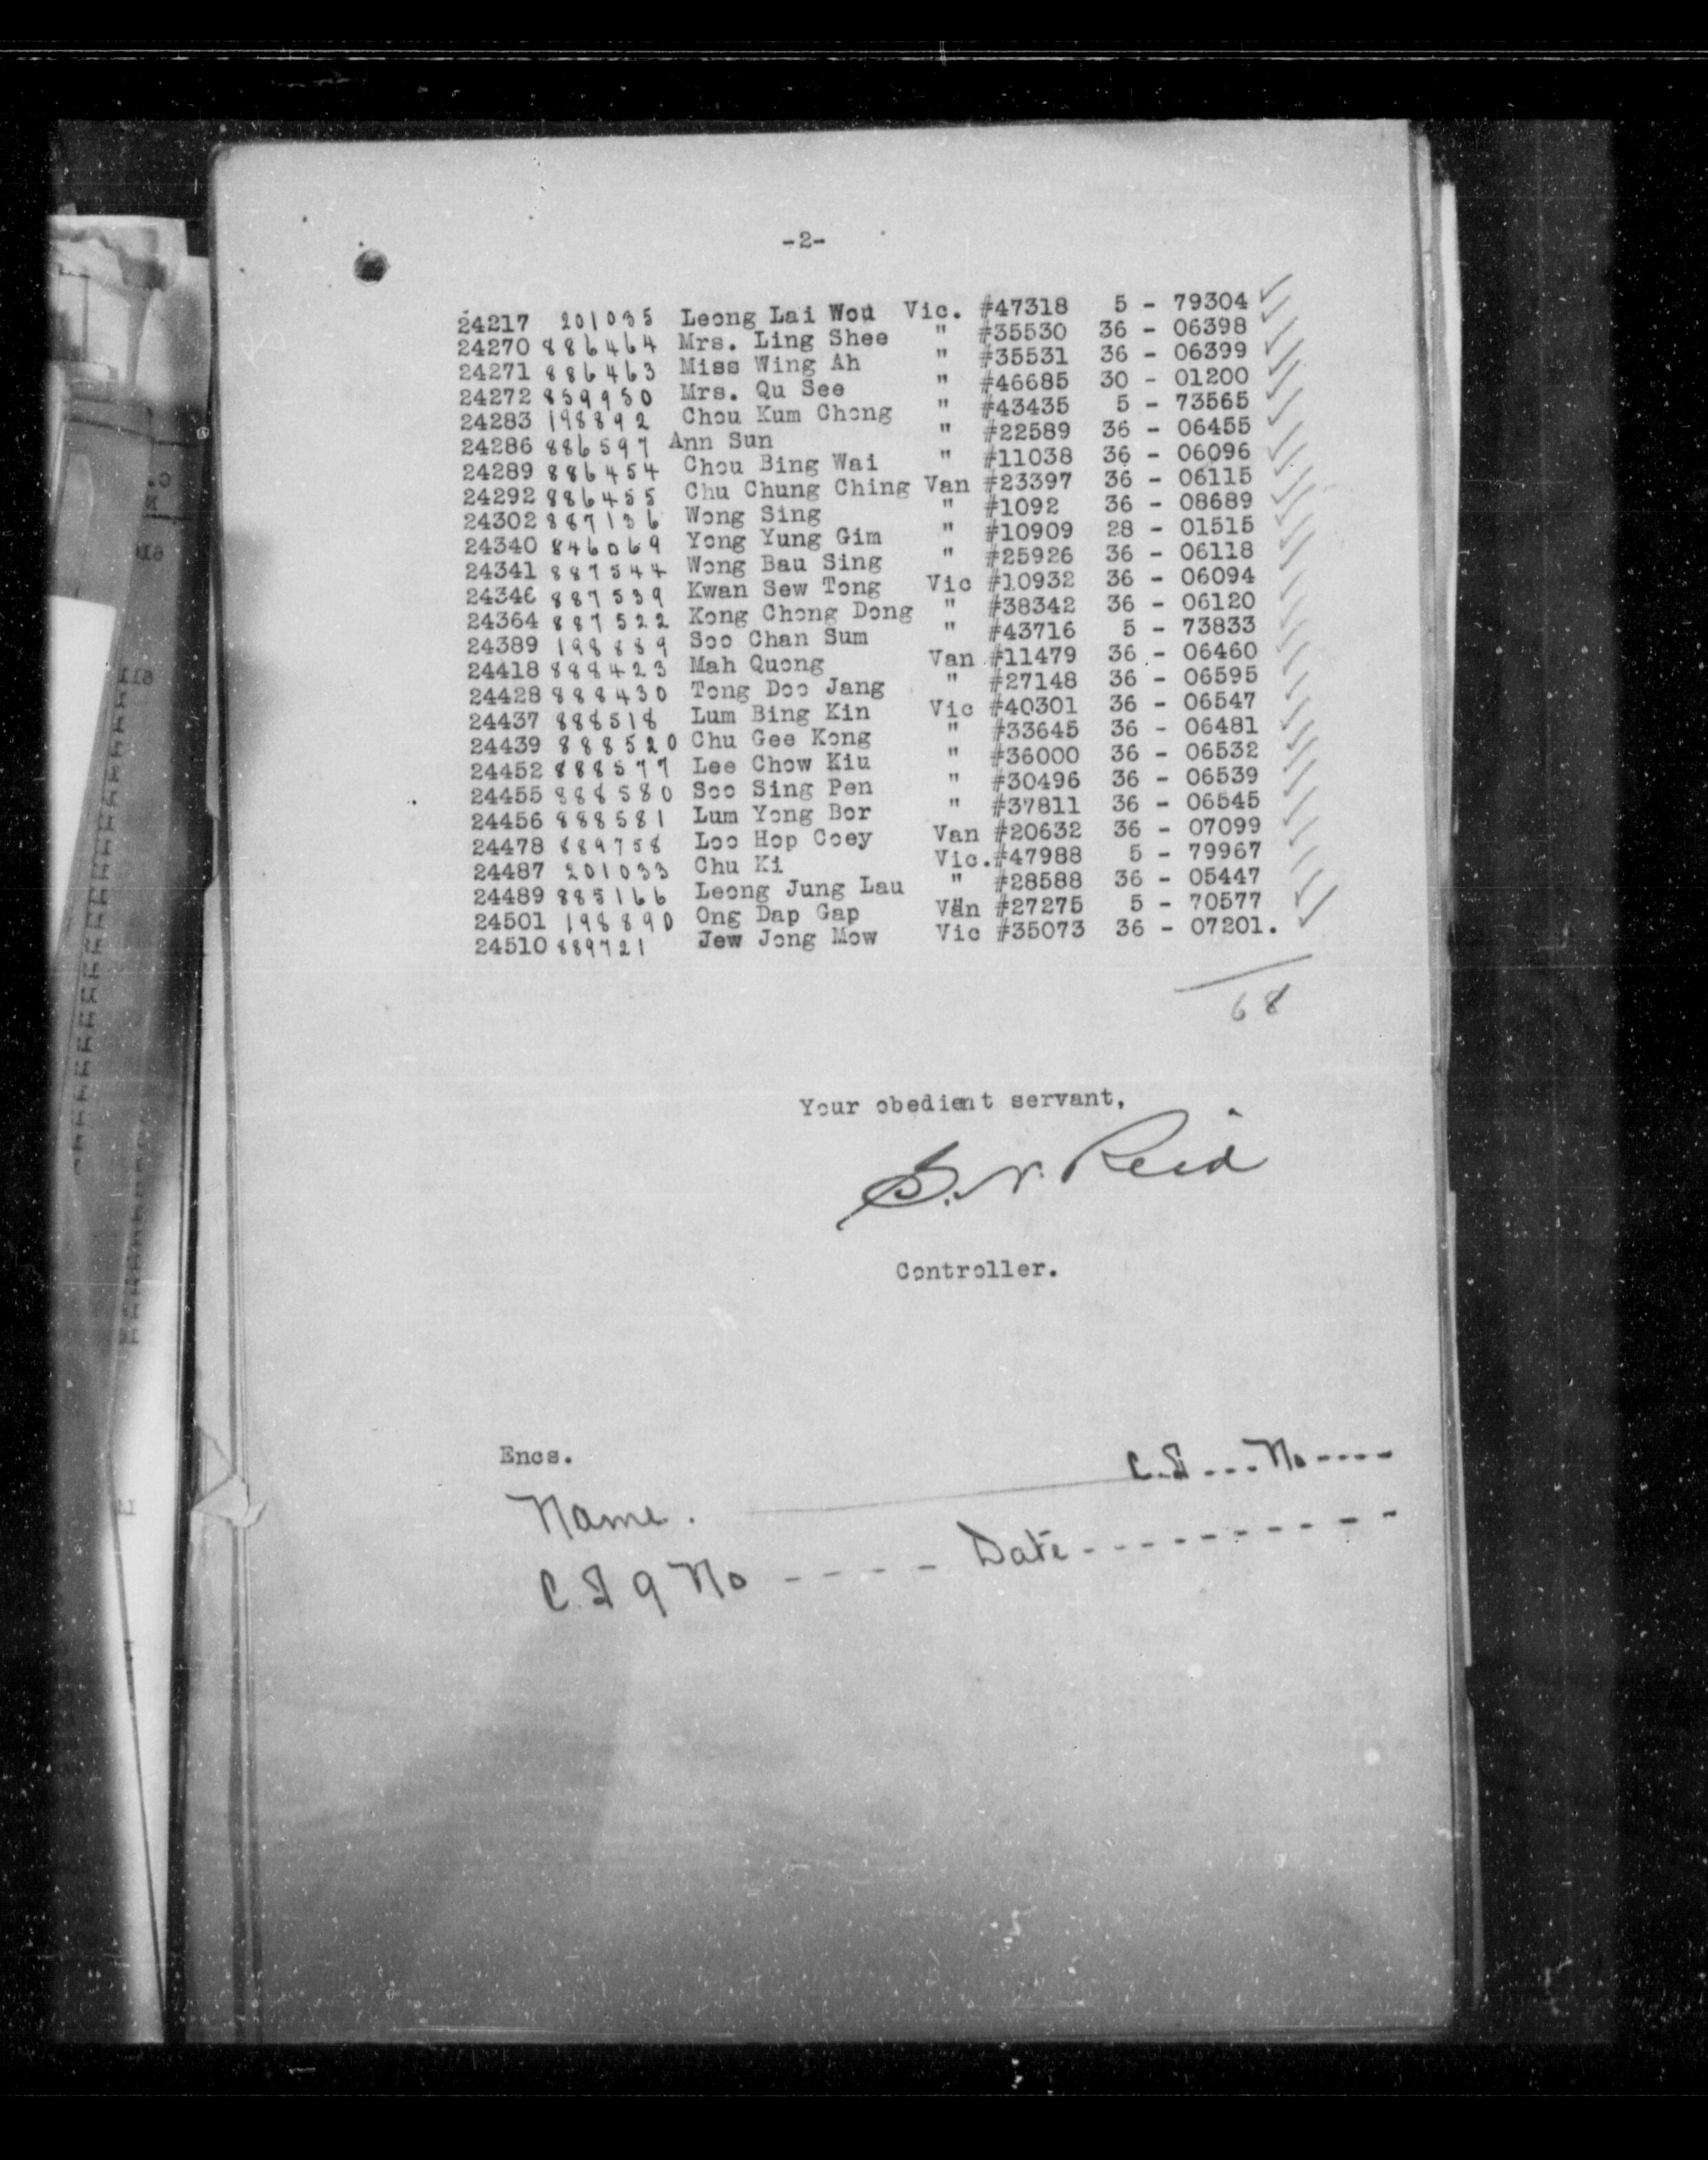 -2-
24217 201035 Leong Lai Wou Vic. #47318 5 - 79304
24270 886464 Mrs. Ling Shee " #35530 36 - 06398
24271 886463 Miss Wing Ah " #35531 36 - 06399
24272 859950 Mrs. Qu See " #46685 30 - 01200
24283 198892 Chou Kum Chong " #43435 5 - 73565
24286 886597 Ann Sun " #22589 36 - 06455
24289 886454 Chou Bing Wai " #11038 36 - 06096
24292 886455 Chu Chung Ching Van #23397 36 - 06115
24302 887136 Wong Sing " #1092 36 - 08689
24340 846069 Yong Yung Gim " #10909 28 - 01515
24341 887544 Wong Bau Sing " #25926 36 - 06118
24346 887539 Kwan Sew Tong Vic #10932 36 - 06094
24364 887522 Kong Chong Dong " #38342 36 - 06120
24389 198889 Soo Chan Sum " #43716 5 - 73833
24418 888423 Mah Quong Van #11479 36 - 06460
24428 888430 Tong Doo Jang " #27148 36 - 06595
24437 888518 Lum Bing Kin Vic #40301 36 - 06547
24439 888520 Chu Gee Kong " #33645 36 - 06481
24452 888577 Lee Chow Kiu " #36000 36 - 06532
24455 888580 Soo Sing Pen " #30496 36 - 06539
24456 888581 Lum Yong Bor " #37811 36 - 06545
24478 889758 Loo Hop Coey Van #20632 36 - 07099
24487 201033 Chu Ki Vic. #47988 5 - 79967
24489 885166 Leong Jung Lau " #28588 36 - 05447
24501 198890 Ong Dap Gap Van #27275 5 - 70577
24510 889721 Jew Jong Mow Vic #35073 36 - 07201.
68
Your obedient servant,
G. N. Reid
Controller.
Encs.
C.I...No----
Name.
C.I 9 No ----- Date----------